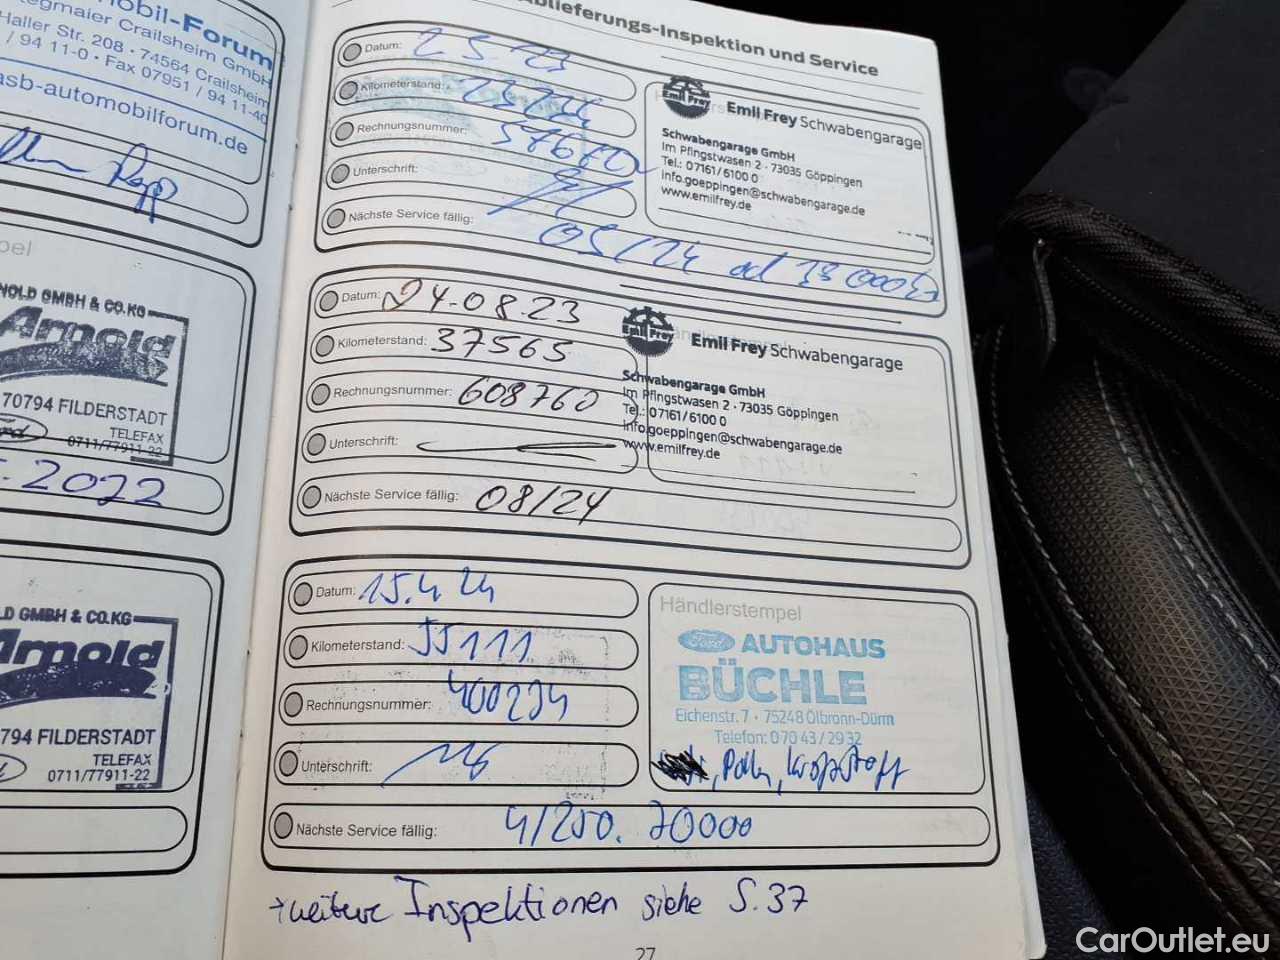 obil-Forum
egmaier Crailsheim GmbH
Haller Str. 208 · 74564 Crailsheim
/ 94 11-0 · Fax 07951 / 94 11-40
asb-automobilforum.de
pel
NOLD GMBH & CO.KG
Arnold
70794 FILDERSTADT
TELEFAX
0711/77911-22
.2022
LD GMBH & CO.KG
Arnold
794 FILDERSTADT
TELEFAX
0711/77911-22
blieferungs-Inspektion und Service
Datum:
Kilometerstand:
Rechnungsnummer:
Unterschrift:
Nächste Service fällig: 05/24
Emil Frey
Emil Frey Schwabengarage
Schwabengarage GmbH
Im Pfingstwasen 2 · 73035 Göppingen
Tel.: 07161/6100 0
info.goeppingen@schwabengarage.de
www.emilfrey.de
Datum: 24.08.23
Kilometerstand: 37565
Rechnungsnummer: 608760
Unterschrift:
Nächste Service fällig: 08/24
Händlerstempel
Emil Frey
Emil Frey Schwabengarage
Schwabengarage GmbH
Im Pfingstwasen 2 · 73035 Göppingen
Tel.: 07161/6100 0
info.goeppingen@schwabengarage.de
www.emilfrey.de
Datum: 15.4.24
Kilometerstand: 55111
Rechnungsnummer: 400294
Unterschrift:
Nächste Service fällig:
Händlerstempel
Ford AUTOHAUS
BÜCHLE
Eichenstr. 7 · 75248 Ölbronn-Dürrn
Telefon: 0 70 43 / 29 32
, Pollen, Kraftstoff
70000
→ weitere Inspektionen siehe S. 37
27
CarOutlet.eu